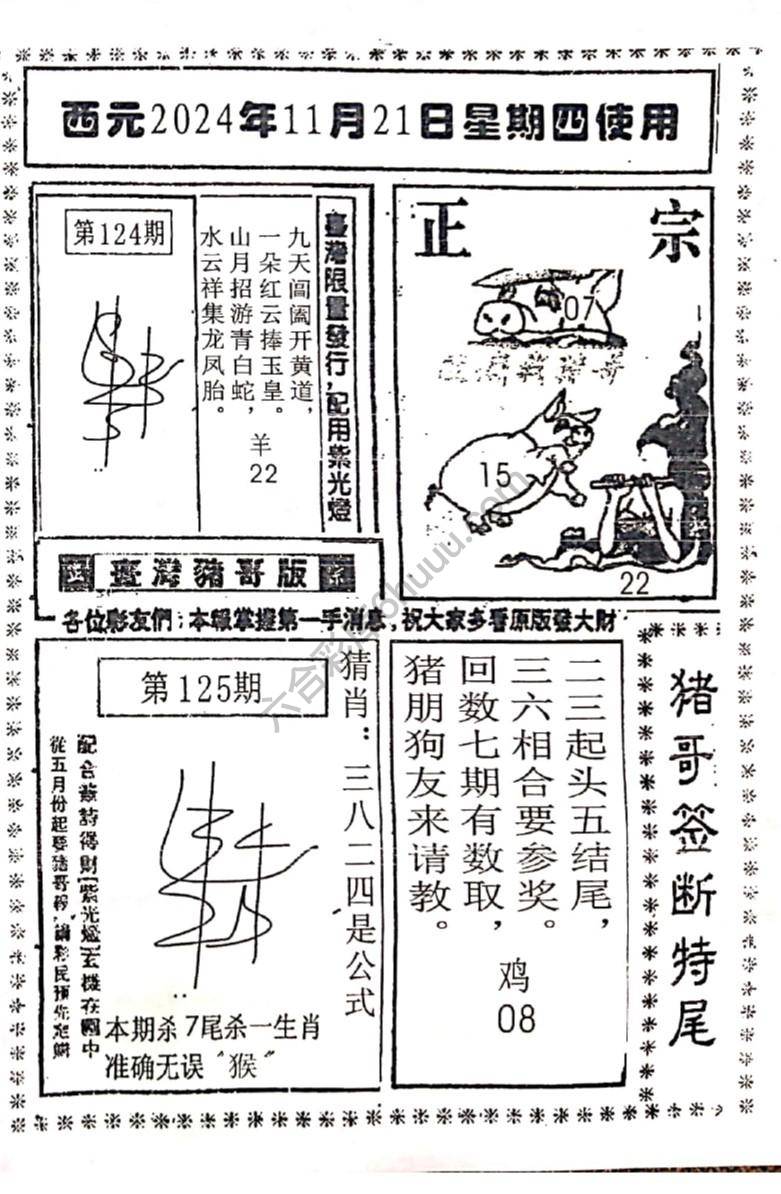 西元2024年11月21日星期四使用
第124期
九天閶阖开黄道，
一朵红云捧玉皇。
山月招游青白蛇，
水云祥集龙凤胎。
羊
22
臺灣限量發行，配用紫光燈
正宗
07
15
22
正 臺灣豬哥版 宗
各位彩友們：本報掌握第一手消息，祝大家多看原版發大財
第125期
猜肖：三八二四是公式
配合簽詩得財［紫光燈］玄機在圖中
本期杀7尾杀一生肖
准确无误“猴”
二三起头五结尾，
三六相合要参奖。
回数七期有数取，
猪朋狗友来请教。
鸡
08
猪哥签断特尾
六合彩库6huuu.com